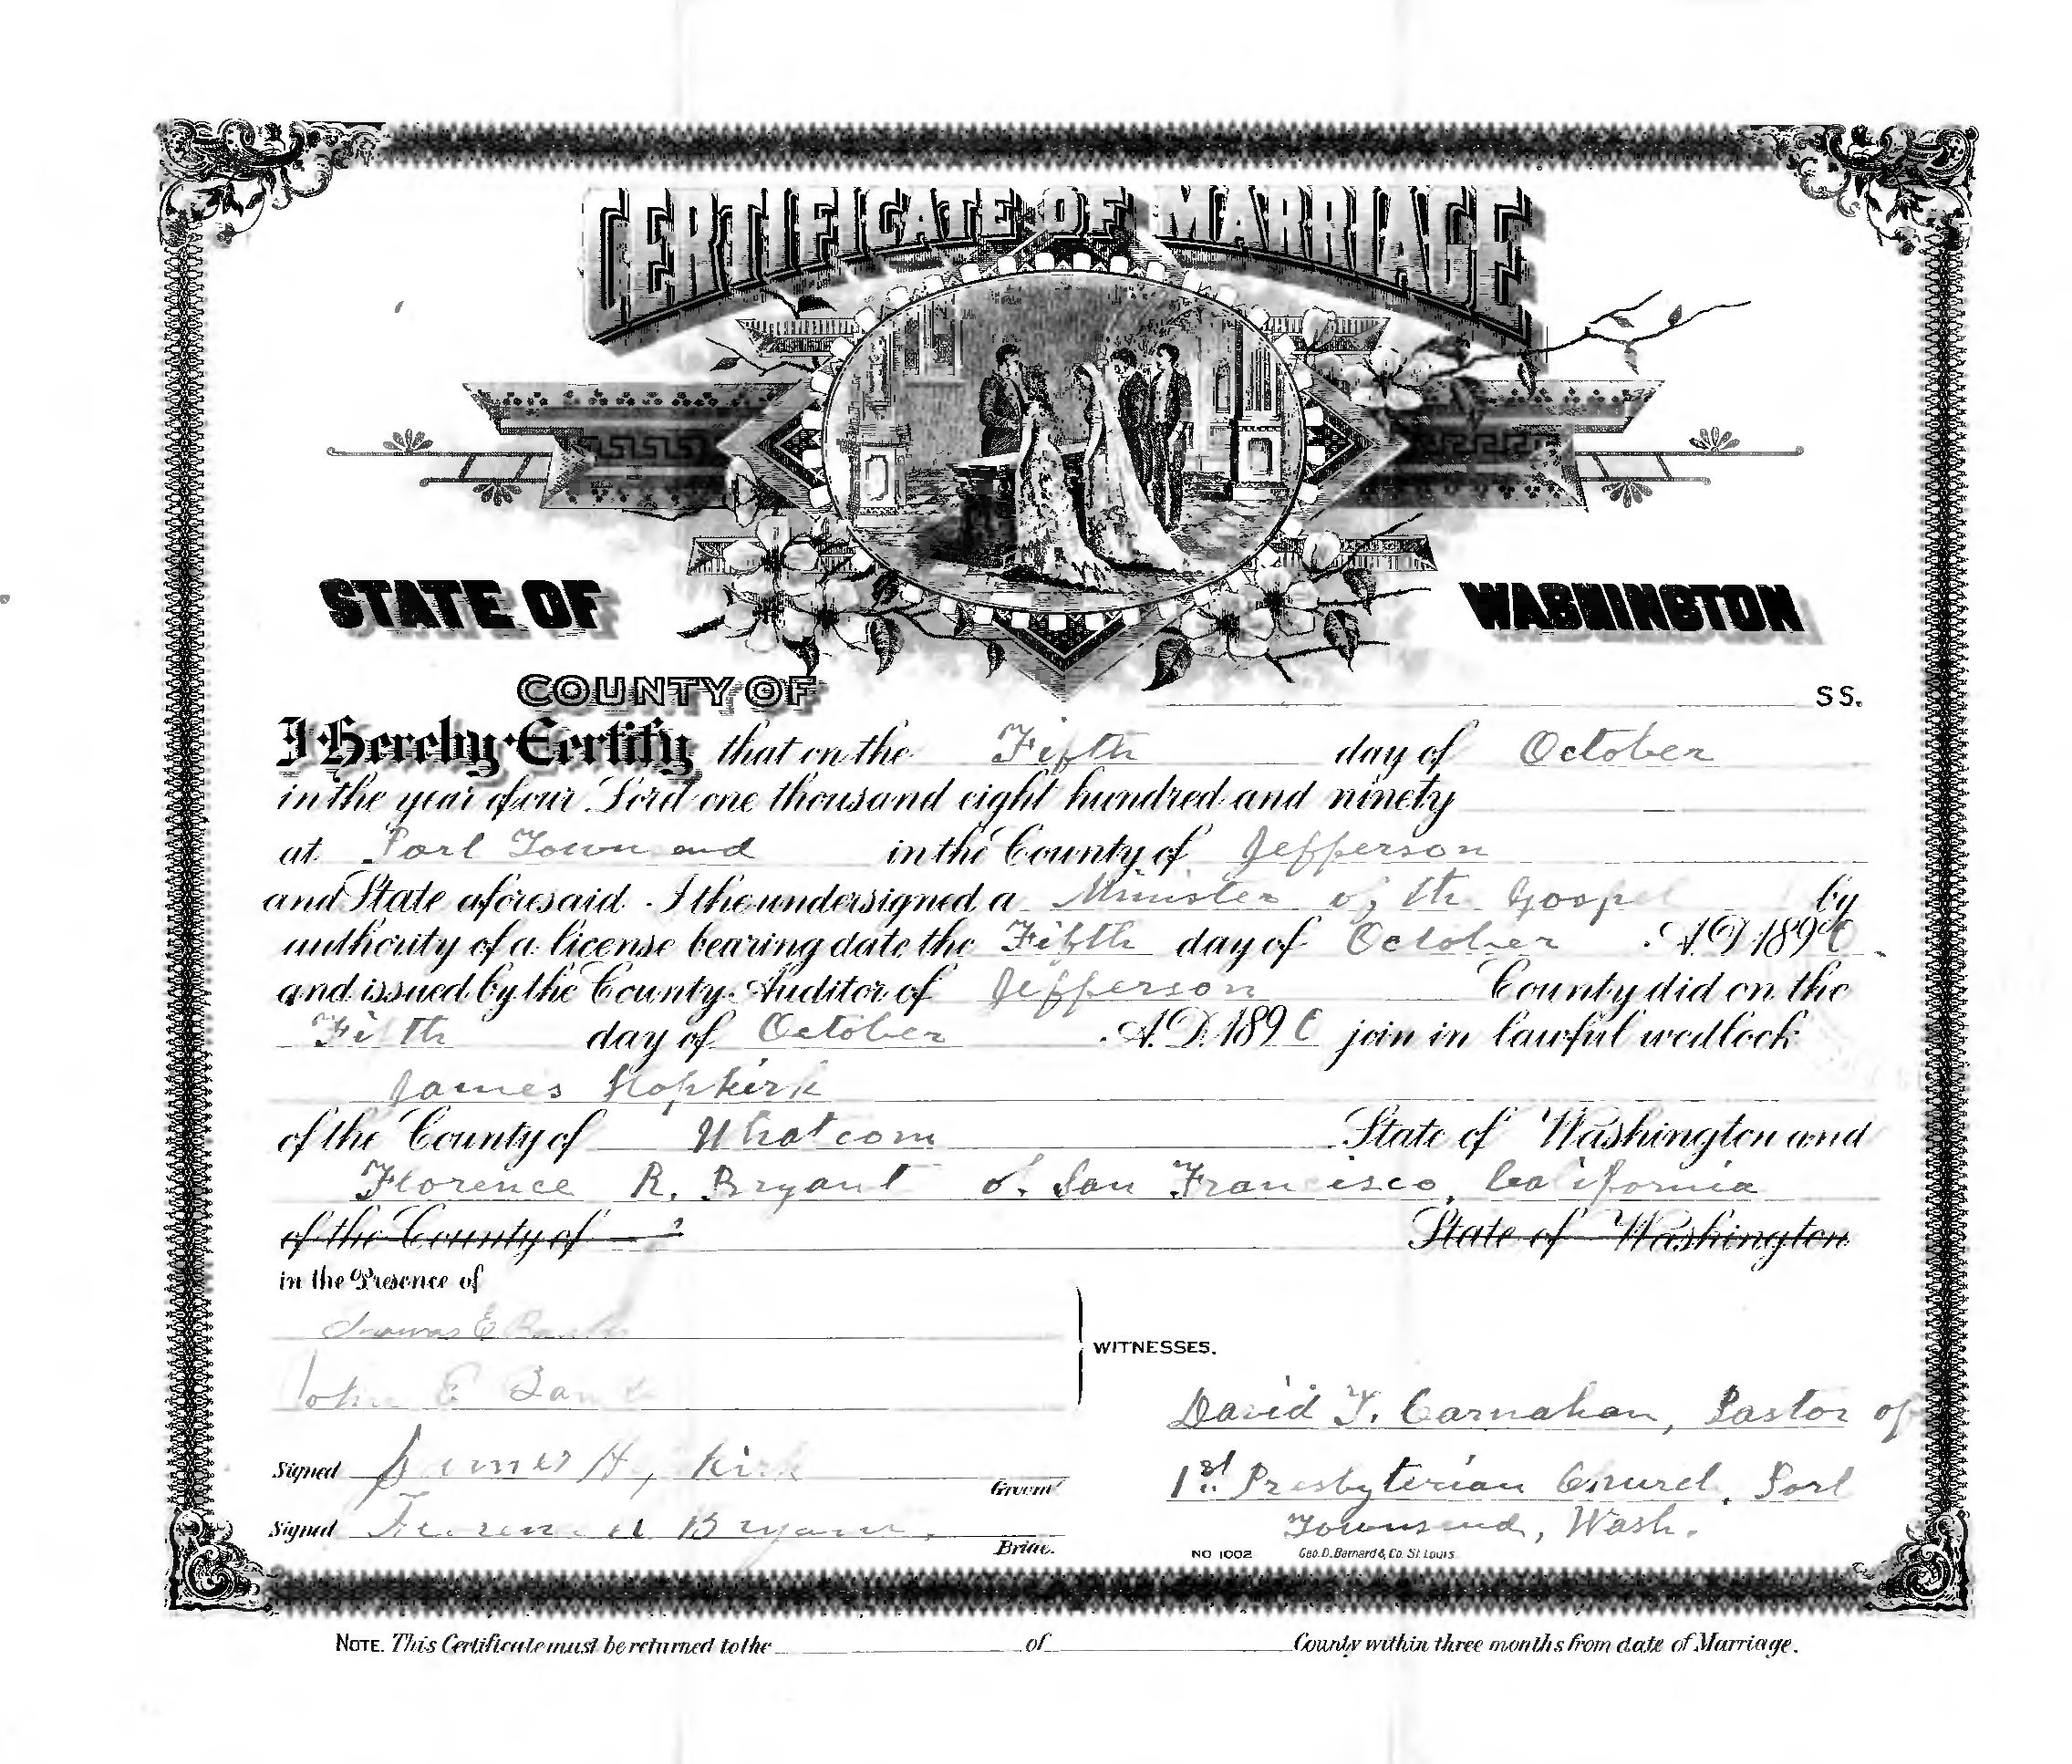 CERTIFICATE OF MARRIAGE
STATE OF WASHINGTON
COUNTY OF SS.
I Hereby Certify that on the Fifth day of October
in the year of our Lord one thousand eight hundred and ninety
at Port Townsend in the County of Jefferson
and State aforesaid I the undersigned a Minister of the Gospel by
authority of a license bearing date the Fifth day of October A.D. 1890
and issued by the County Auditor of Jefferson County did on the
Fifth day of October A.D. 1890 join in lawful wedlock
James Hopkirk
of the County of Whatcom State of Washington and
Florence R. Bryant of San Francisco, California
of the County of State of Washington
in the Presence of
E
WITNESSES.
John E
David T. Carnahan, Pastor of
Signed James Hopkirk Groom
1st Presbyterian Church, Port
Signed Florence R Bryant. Bride.
Townsend, Wash.
NO 1002 Geo. D. Barnard & Co. St. Louis
NOTE. This Certificate must be returned to the of County within three months from date of Marriage.